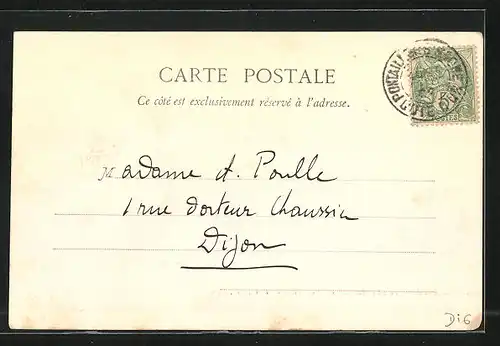 CARTE POSTALE
Ce côté est exclusivement réservé à l'adresse.
Madame A. Poulle
1 rue Docteur Chaussier
Dijon
DiG